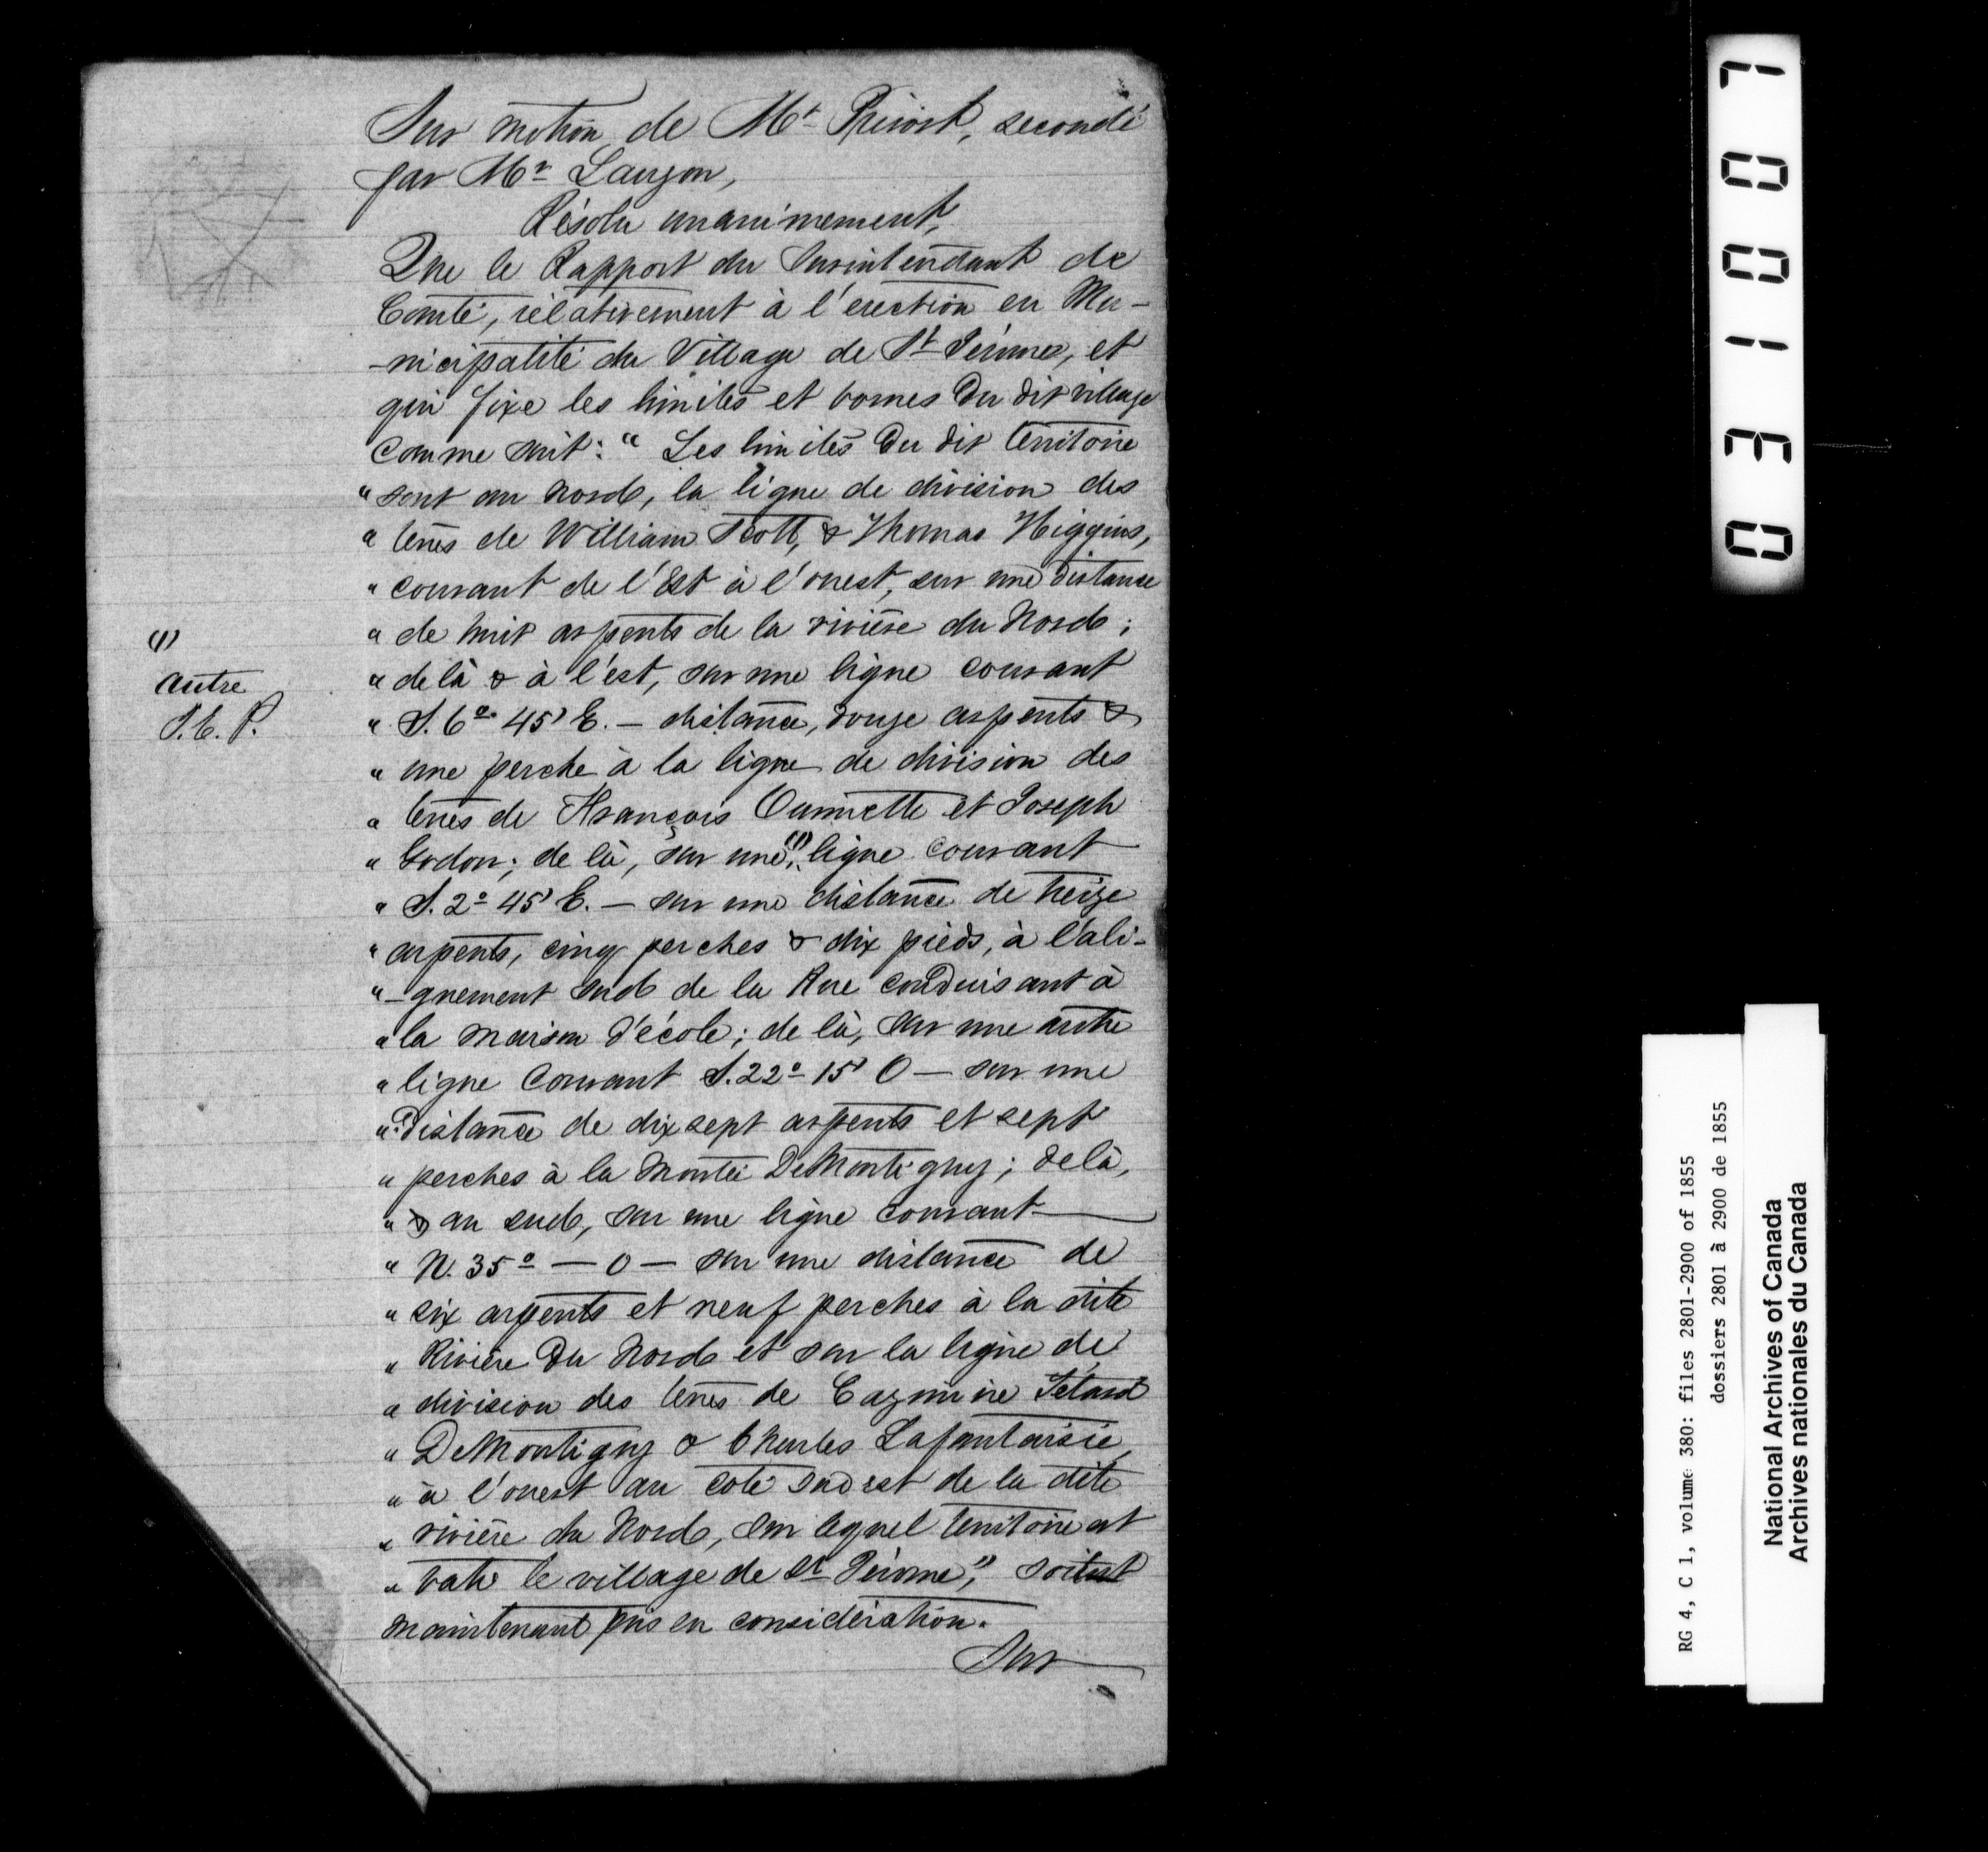 Sur motion de Mr Prévost, secondé
par Mr Lauzon,
Résolu unanimement,
Que le Rapport du Surintendant de
Comté, relativement à l'érection en Mu-
-nicipalité du Village de St Jérôme, et
qui fixe les limites et bornes du dit village
comme suit: " Les limites du dit territoire
" sont au nord, la ligne de division des
" terres de William Scott, & Thomas Higgins,
" courant de l'Est à l'ouest, sur une distance
" de huit arpents de la rivière du Nord;
" de là & à l'est, sur une ligne courant
" S. 6° 45' E. — distance, douze arpents &
" une perche à la ligne de division des
" terres de François Ouimette et Joseph
" Godon; de là, sur une (1) ligne courant
(1)
autre
" S. 2° 45' E. — sur une distance de treize
" arpents, cinq perches & dix pieds, à l'ali-
" -gnement sud de la Rue conduisant à
" la maison d'école; de là, sur une autre
" ligne courant S. 22° 15' O — sur une
" distance de dix sept arpents et sept
" perches à la Montée DeMontigny; de là,
" & au sud, sur une ligne courant
" N. 35° — O — sur une distance de
" six arpents et neuf perches à la dite
" Rivière du Nord et sur la ligne de
" division des terres de Cazimire Tétard
" DeMontigny & Charles Lafantaisie,
" à l'ouest au coté sud est de la dite
" rivière du Nord, sur lequel territoire est
" bati le village de St Jérôme," soit
maintenant pris en considération.
Sur
031007
RG 4, C 1, volume 380: files 2801-2900 of 1855
dossiers 2801 à 2900 de 1855
National Archives of Canada
Archives nationales du Canada